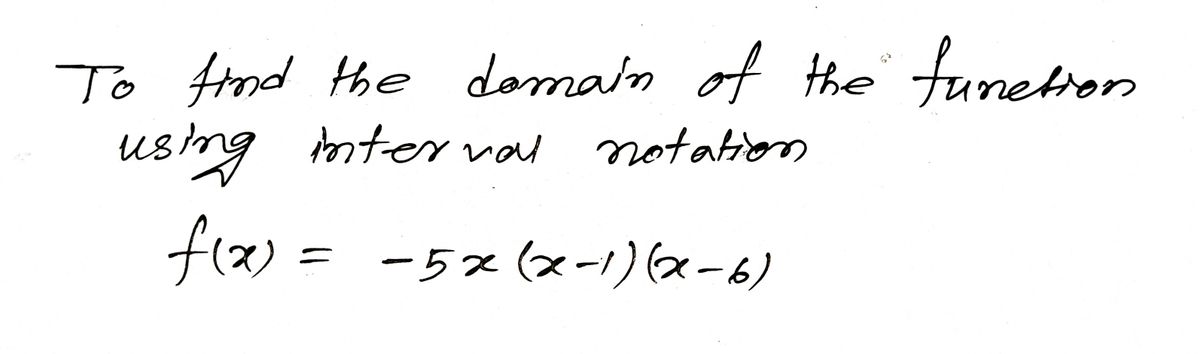 To find the domain of the function
using interval notation
f(x) = -5x(x-1)(x-6)